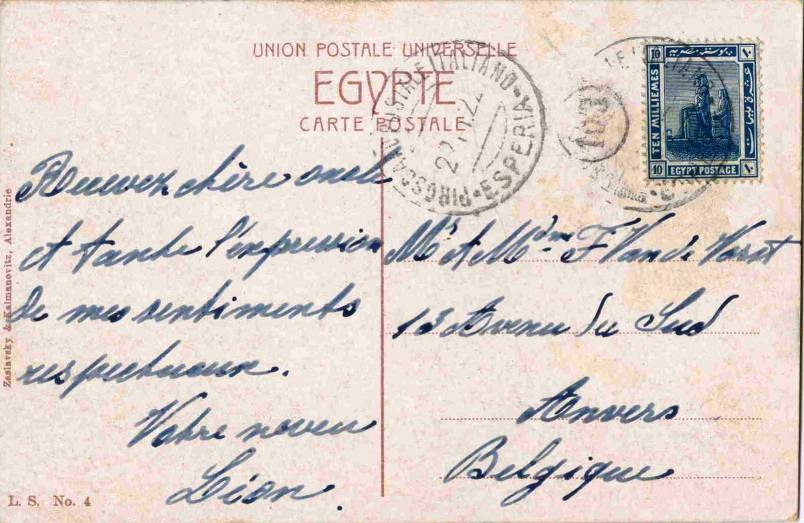 UNION POSTALE UNIVERSELLE
EGYPTE
CARTE POSTALE
POSTALE ITALIANO
PIROSCAFO
ESPERIA
10 10
TEN MILLIEMES
EGYPT POSTAGE
Recevez chère oncle
et tante l'expression
de mes sentiments
respectueux.
Votre neveu
Léon.
Mr & Mdm F Van de Vorst
13 Avenu du Sud
Anvers
Belgique
Zaslavsky & Kalmanovitz, Alexandrie
L. S. No. 4